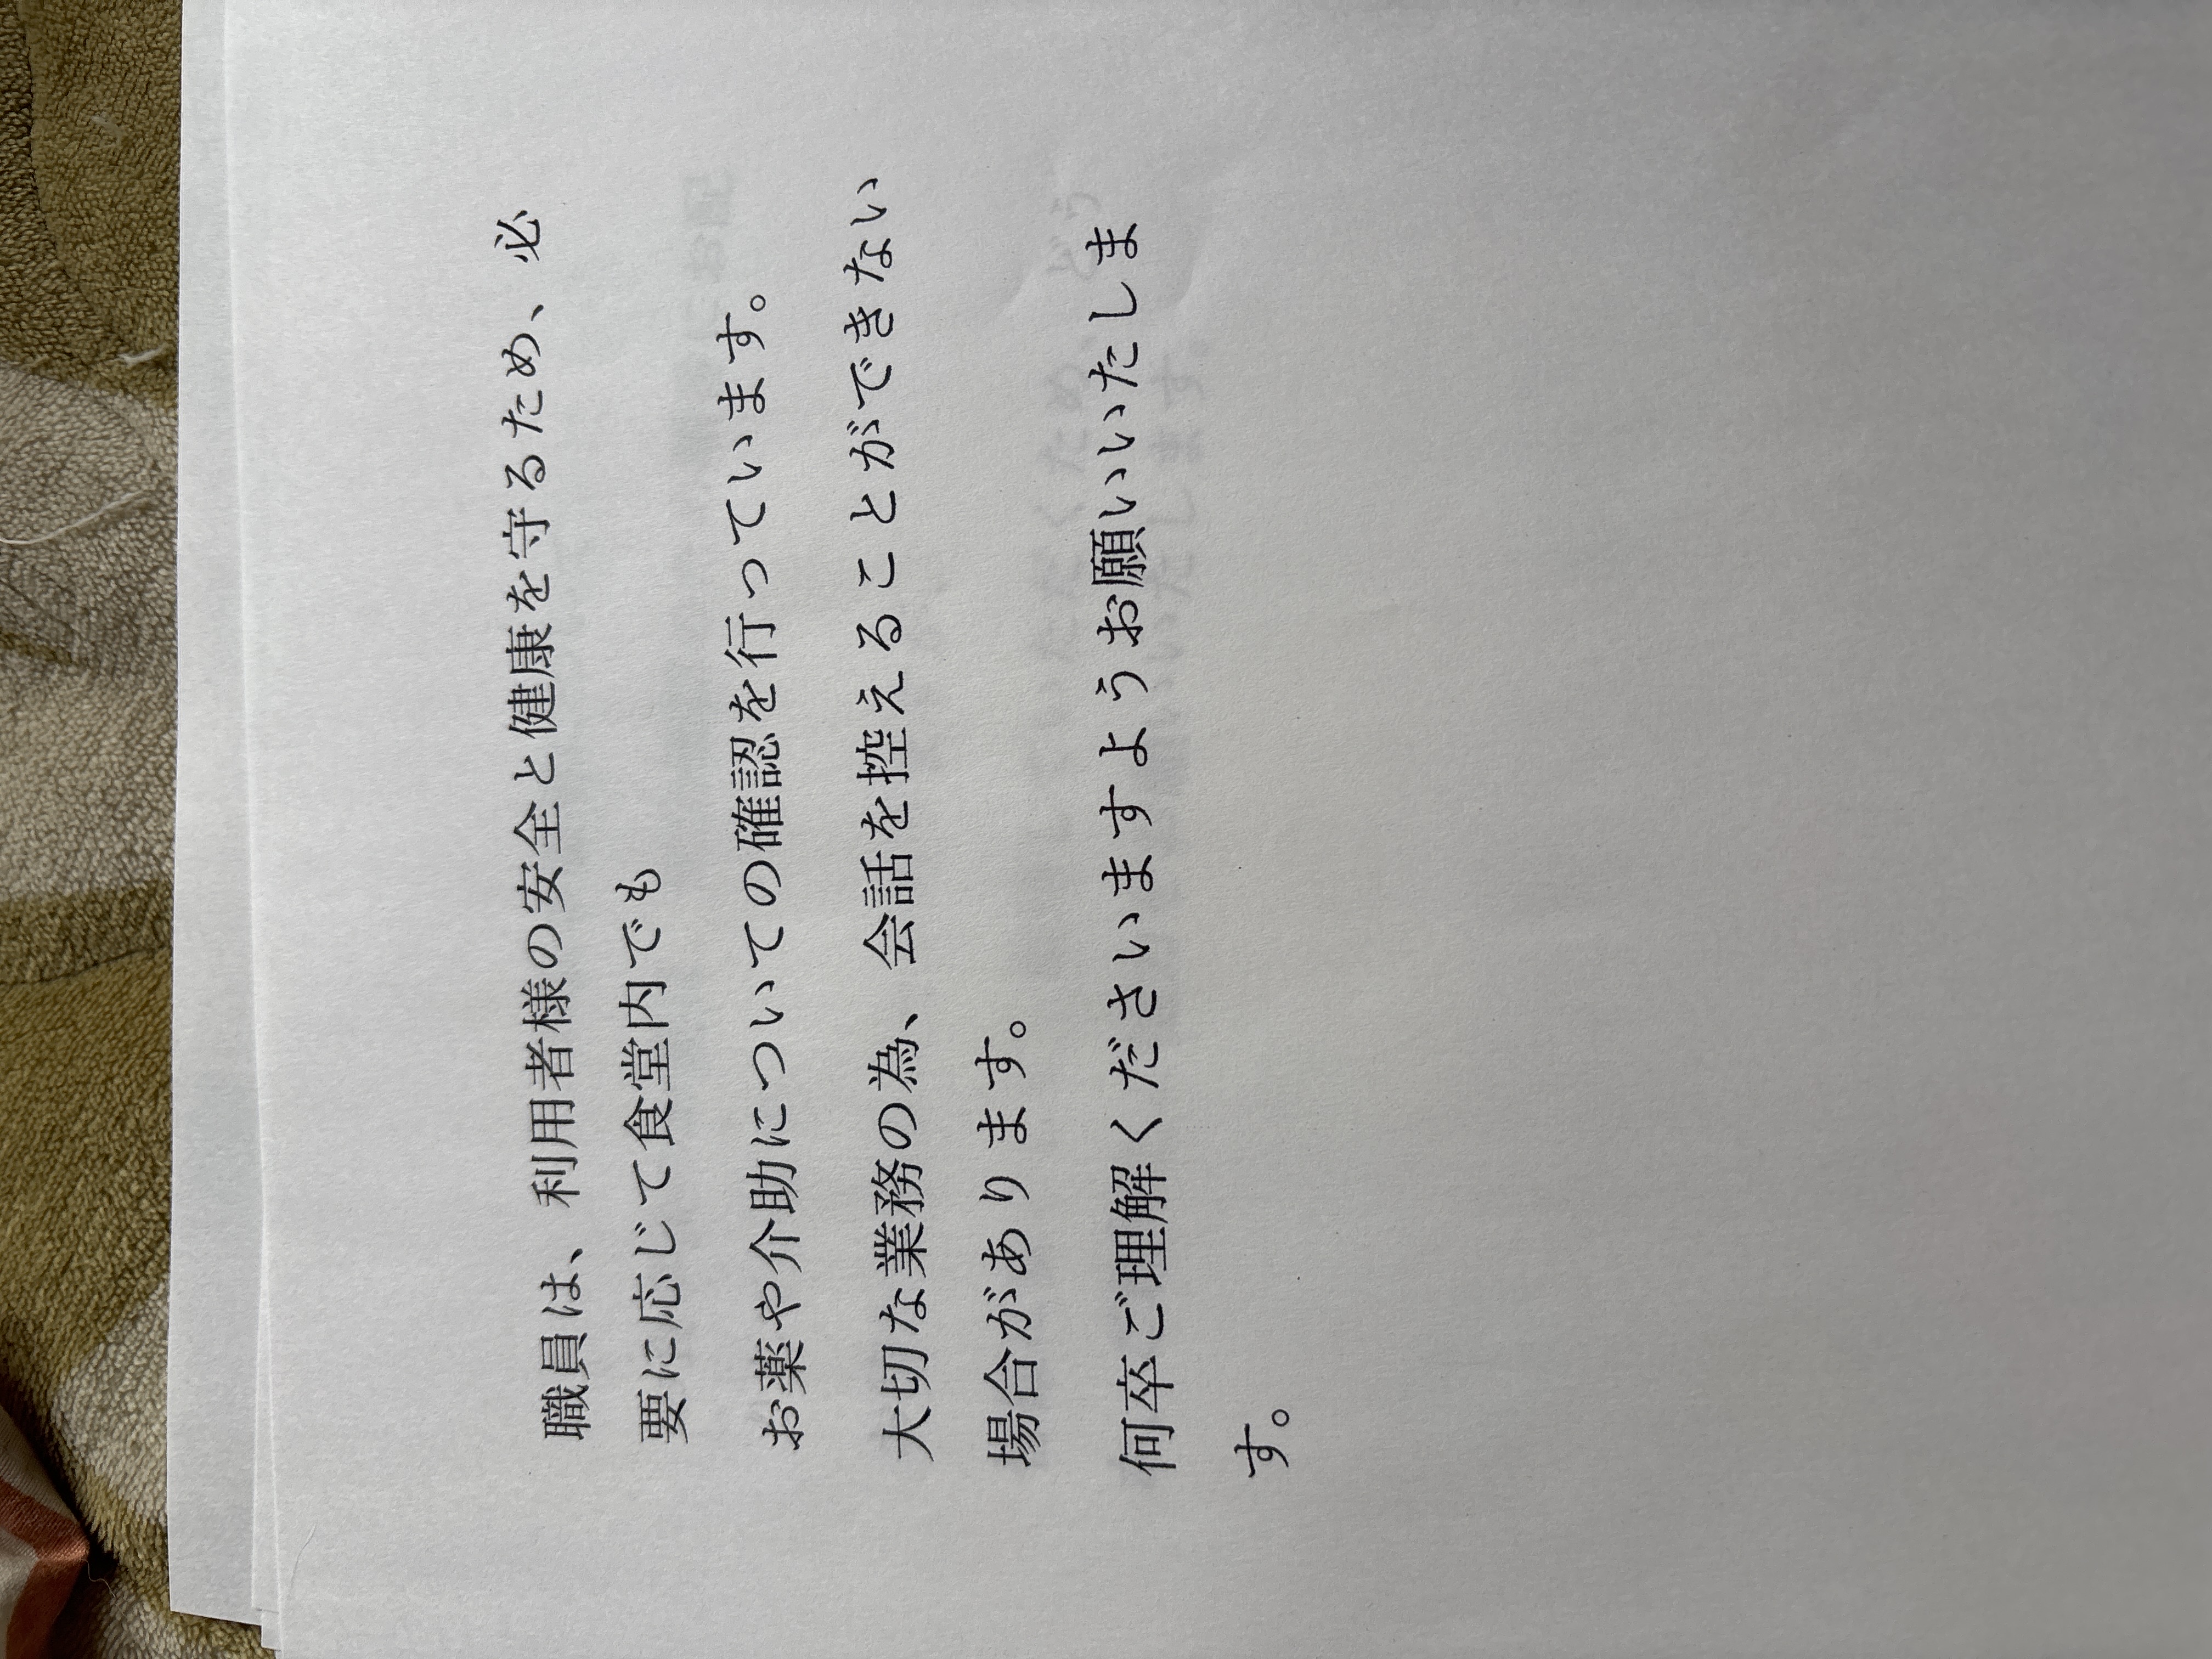 職員は、利用者様の安全と健康を守るため、必
要に応じて食堂内でも
お薬や介助についての確認を行っています。
大切な業務の為、会話を控えることができない
場合があります。
何卒ご理解くださいますようお願いいたしま
す。